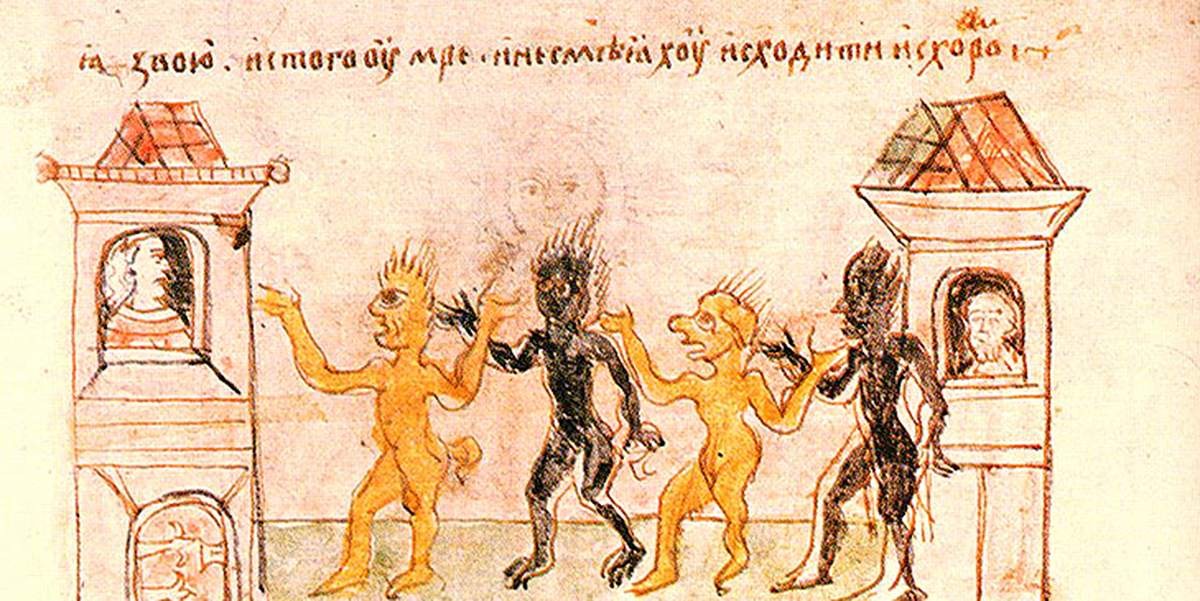 ꙗ звою. и с того оу мре. и не смѣꙗхоу исходити исхоро